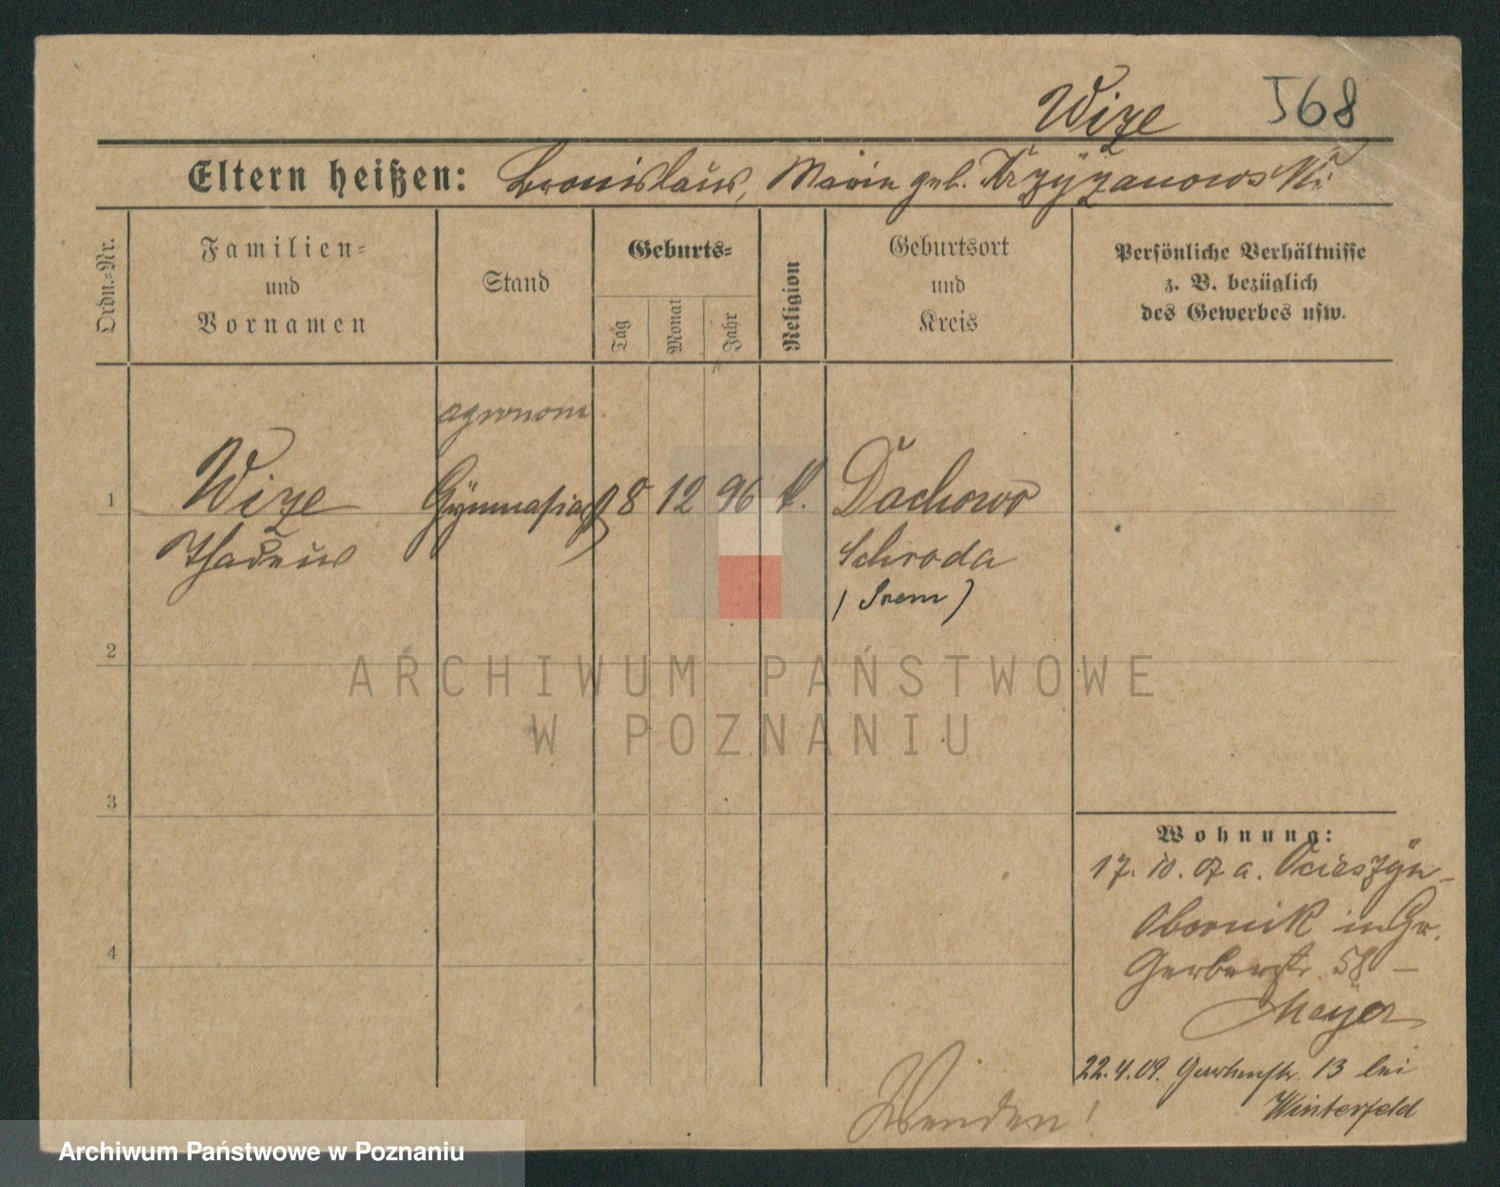 Wize 568
Eltern heißen: Bronislaus, Maria geb. Krzyżanowski
Ordn.-Nr.
Familien-
und
Vornamen
Stand
Geburts-
Tag
Monat
Jahr
Religion
Geburtsort
und
Kreis
Persönliche Verhältnisse
z. B. bezüglich
des Gewerbes usw.
agronom
1 Wize Gymnasiast 8 12 96 k. Dachowo
Thadeus Schroda
(Srem)
2
3
4
ARCHIWUM PAŃSTWOWE
W POZNANIU
Wohnung:
17. 10. 07 a. Ocieszyn-
Obornik in Gr.
Gerberstr. 58 –
Meyer
22.4.09. Gartenstr. 13 bei
Winterfeld
Wenden!
Archiwum Państwowe w Poznaniu